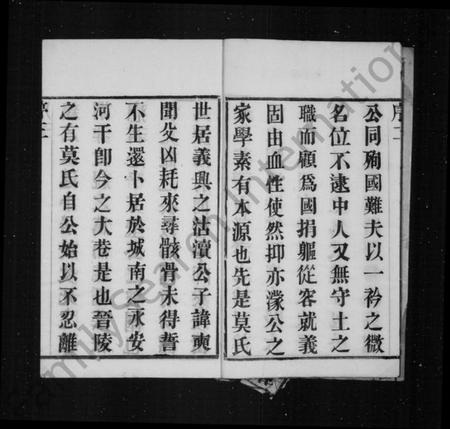 公同殉國難夫以一衿之微
名位不逮中人又無守土之
職而顧為國捐軀從容就義
固由血性使然抑亦濛公之
家學素有本源也先是莫氏
世居義興之沽瀆公子諱奭
聞父凶耗來尋骸骨未得誓
不生還卜居於城南之永安
河干卽今之大巷是也晉陵
之有莫氏自公始以不忍離
序三
FamilySearch International